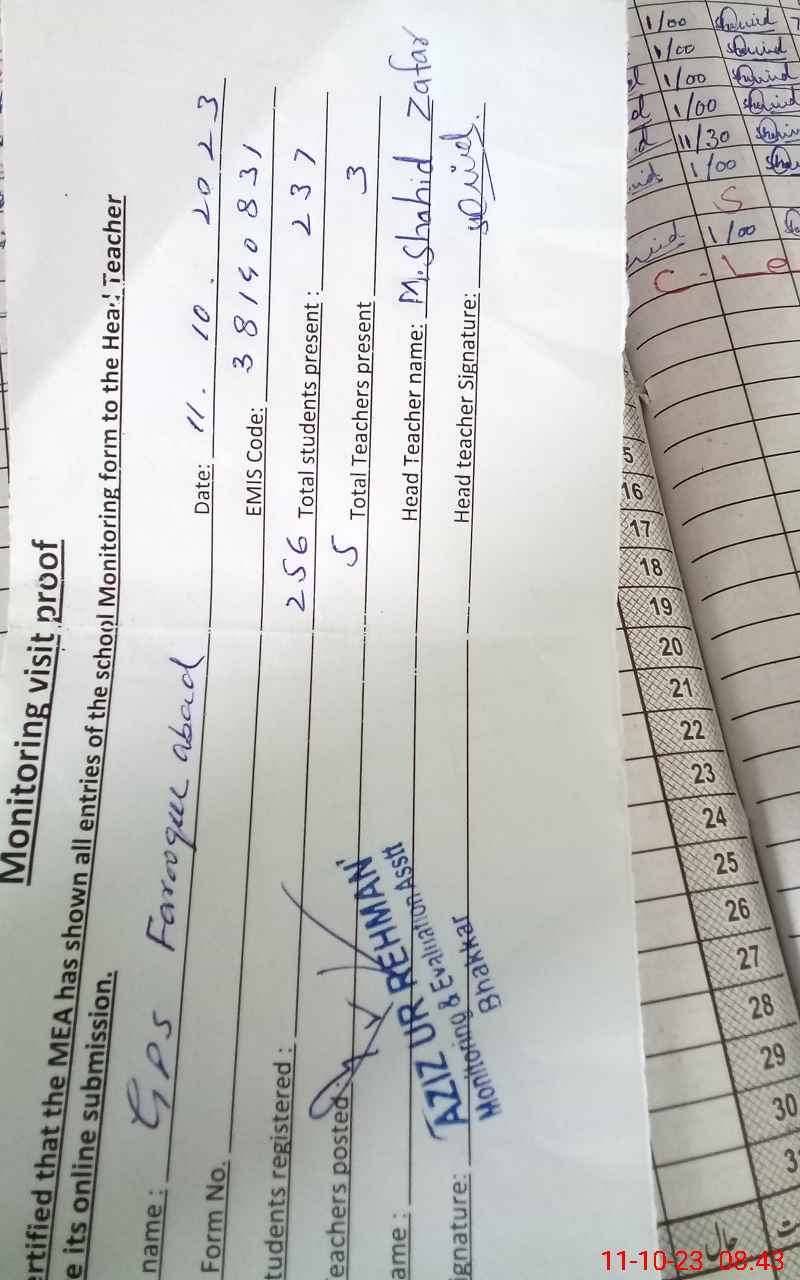 Monitoring visit proof
ertified that the MEA has shown all entries of the school Monitoring form to the Head Teacher
e its online submission.
name : GPS Farooque abad Date: 11. 10. 2023
Form No. EMIS Code: 38140831
tudents registered : 256 Total students present : 237
eachers posted : 5 Total Teachers present 3
ame : Head Teacher name: M. Shahid Zafar
ignature: Head teacher Signature:
AZIZ UR REHMAN
Monitoring & Evaluation Asstt
Bhakkar
1/00
1/00
1/00
1/00
11/30
1/00
S
1/00
C-Le
5
16
17
18
19
20
21
22
23
24
25
26
27
28
29
30
3
11-10-23 08:43